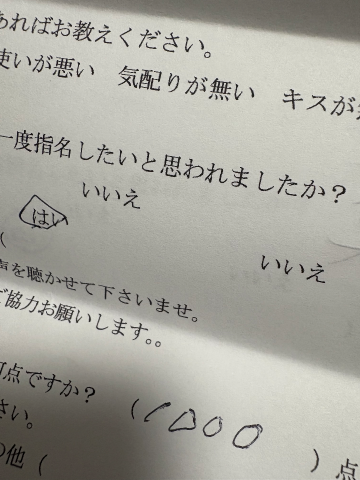 あればお教えください。
使いが悪い　気配りが無い　キスが
一度指名したいと思われましたか？
いいえ
はい
(
いいえ
声を聴かせて下さいませ。
ご協力お願いします。。
何点ですか？
さい。
(1000
)点
の他（